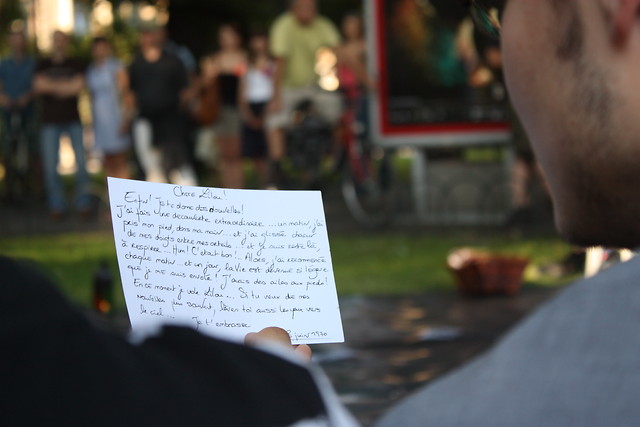 Chère Lilou!
Enfin! Je te donne des nouvelles!
J'ai fais une découverte extraordinaire ... un matin, j'ai
pris mon pied, dans ma main... et j'ai glissé chacun
de mes doigts entre mes orteils... et je suis resté là,
à respirer. Hum! C'était bon!.. Alors, j'ai recommencé
chaque matin... et un jour, la vie est devenue si légère
que je me suis envolé! J'avais des ailes aux pieds!
En ce moment je vole Lilou... Si tu veux de mes
nouvelles plus souvent, lèves toi aussi les yeux vers
le ciel Je t'embrasse
juin 1970